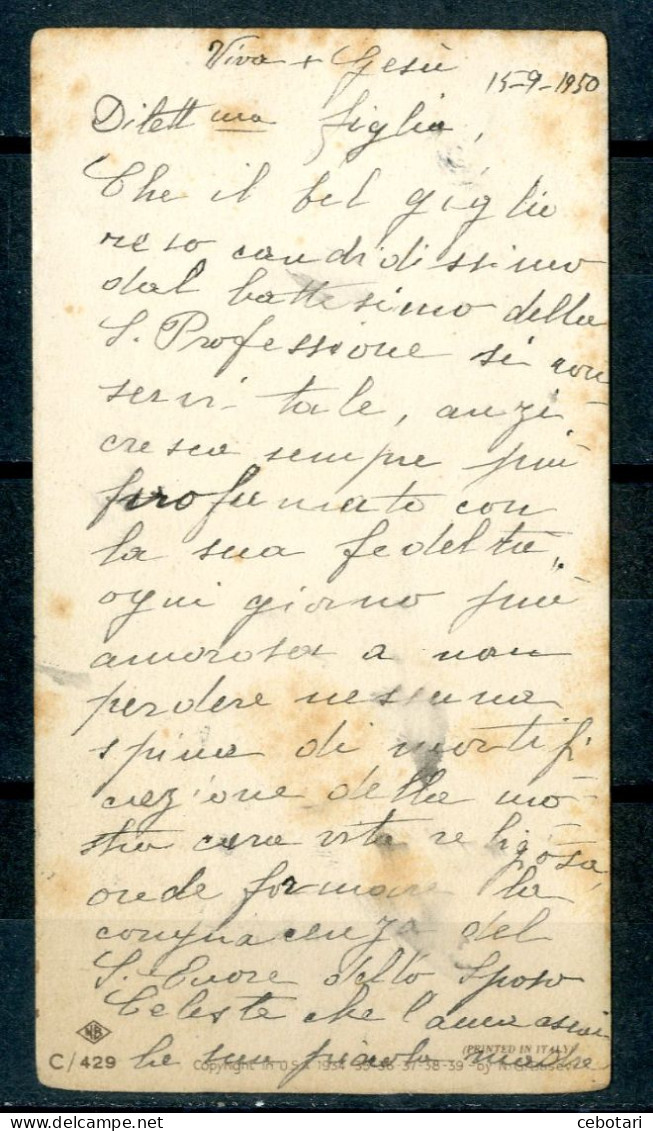 Viva + Gesù
15-9-1950
Dilett ma figlia,
Che il bel giglio
reso candidissimo
dal battesimo della
S. Professione si con
servi tale, anzi
cresca sempre più
profumato con
la sua fedeltà,
ogni giorno più
amorosa a non
perdere nessuna
spina di mortifi
cazione della no-
stra cara vita religiosa,
onde formare la
compiacenza del
S. Cuore dello Sposo
Celeste che l'ama assai
la sua piccola madre
(PRINTED IN ITALY)
NB
C/429
Copyright in U.S.A. 1934-35-36-37-38-39 - by
cebotari